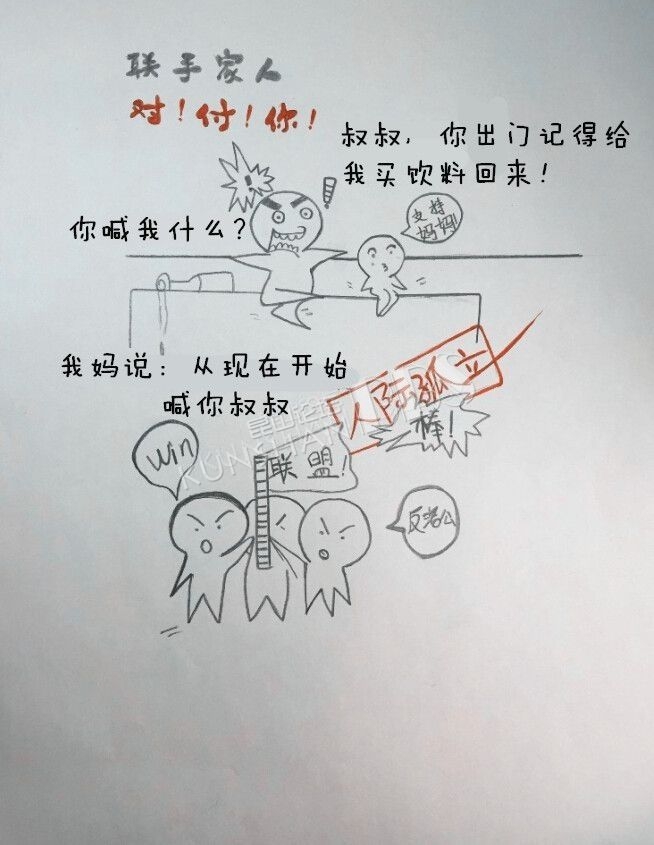 联手家人
对！付！你！
叔叔，你出门记得给
我买饮料回来！
你喊我什么？
支持
妈妈！
我妈说：从现在开始
喊你叔叔
人际孤立
棒！
win
联盟！
反老公